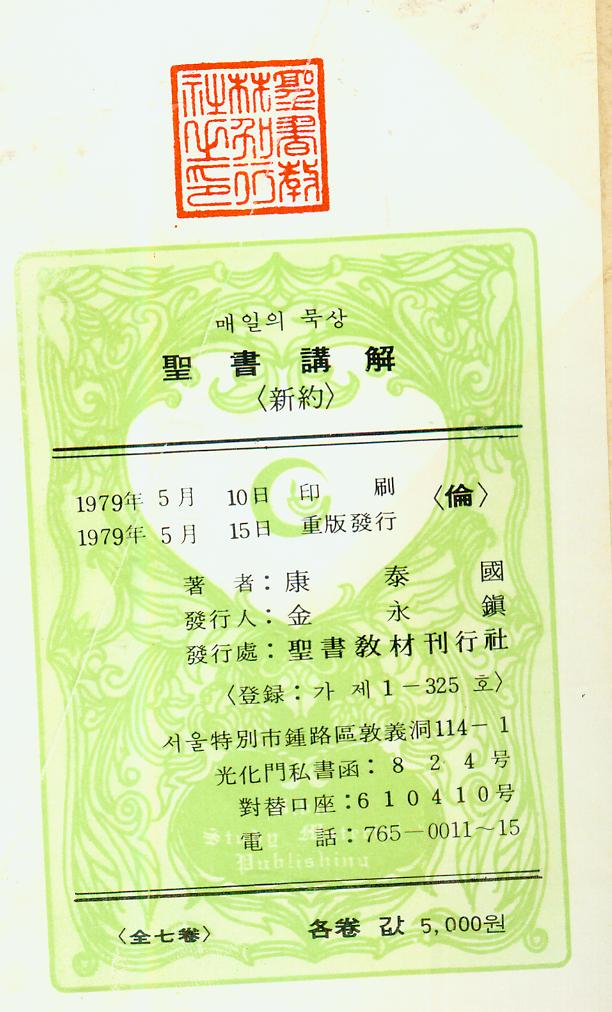 聖書教
材刊行
社之印
매일의 묵상
聖書講解
〈新約〉
1979年 5月 10日 印刷
1979年 5月 15日 重版發行
〈倫〉
著者：康泰國
發行人：金永鎭
發行處：聖書敎材刊行社
〈登録：가 제1－325 호〉
서울特別市鍾路區敦義洞114－1
光化門私書函：8 2 4 号
對替口座：6 1 0 4 1 0 号
電話：765－0011～15
Publishing
〈全七卷〉
各卷 값 5,000원